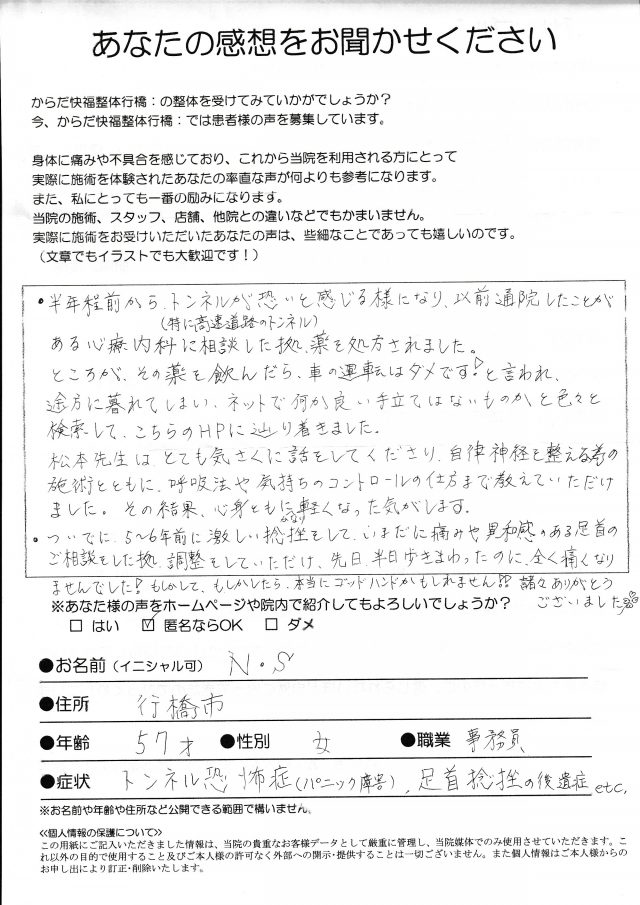 あなたの感想をお聞かせください
からだ快福整体行橋：の整体を受けてみていかがでしょうか？
今、からだ快福整体行橋：では患者様の声を募集しています。
身体に痛みや不具合を感じており、これから当院を利用される方にとって
実際に施術を体験されたあなたの率直な声が何よりも参考になります。
また、私にとっても一番の励みになります。
当院の施術、スタッフ、店舗、他院との違いなどでもかまいません。
実際に施術をお受けいただいたあなたの声は、些細なことであっても嬉しいのです。
（文章でもイラストでも大歓迎です！）
・半年程前から、トンネルが恐いと感じる様になり、以前通院したことが
（特に高速道路のトンネル）
ある心療内科に相談した拠、薬を処方されました。
ところが、その薬を飲んだら、車の運転はダメです！と言われ、
途方に暮れてしまい、ネットで何か良い手立てはないものかと色々と
検索して、こちらのHPに辿り着きました。
松本先生はとても気さくに話をしてくださり、自律神経を整える為の
施術とともに、呼吸法や気持ちのコントロールの仕方まで教えていただけ
ました。その結果、心身ともにかなり軽くなった気がします。
・ついでに、5〜6年前に激しい捻挫をして、いまだに痛みや異和感のある足首の
ご相談をした拠、調整をしていただけ、先日、半日歩きまわったのに、全く痛くなり
ませんでした！もしかして、もしかしたら、本当にゴッドハンドかもしれません!? 諸々ありがとう
ございました
※あなた様の声をホームページや院内で紹介してもよろしいでしょうか？
□ はい ☑ 匿名ならOK □ ダメ
●お名前（イニシャル可） N・S
●住所 行橋市
●年齢 57才 ●性別 女 ●職業 事務員
●症状 トンネル恐怖症（パニック障害）、足首捻挫の後遺症 etc,
※お名前や年齢や住所など公開できる範囲で構いません。
≪個人情報の保護について≫
この用紙にご記入いただきました情報は、当院の貴重なお客様データとして厳重に管理し、当院媒体でのみ使用させていただきます。こ
れ以外の目的で使用すること及びご本人様の許可なく外部への開示・提供することは一切ございません。また個人情報はご本人様からの
お申し出により訂正・削除いたします。